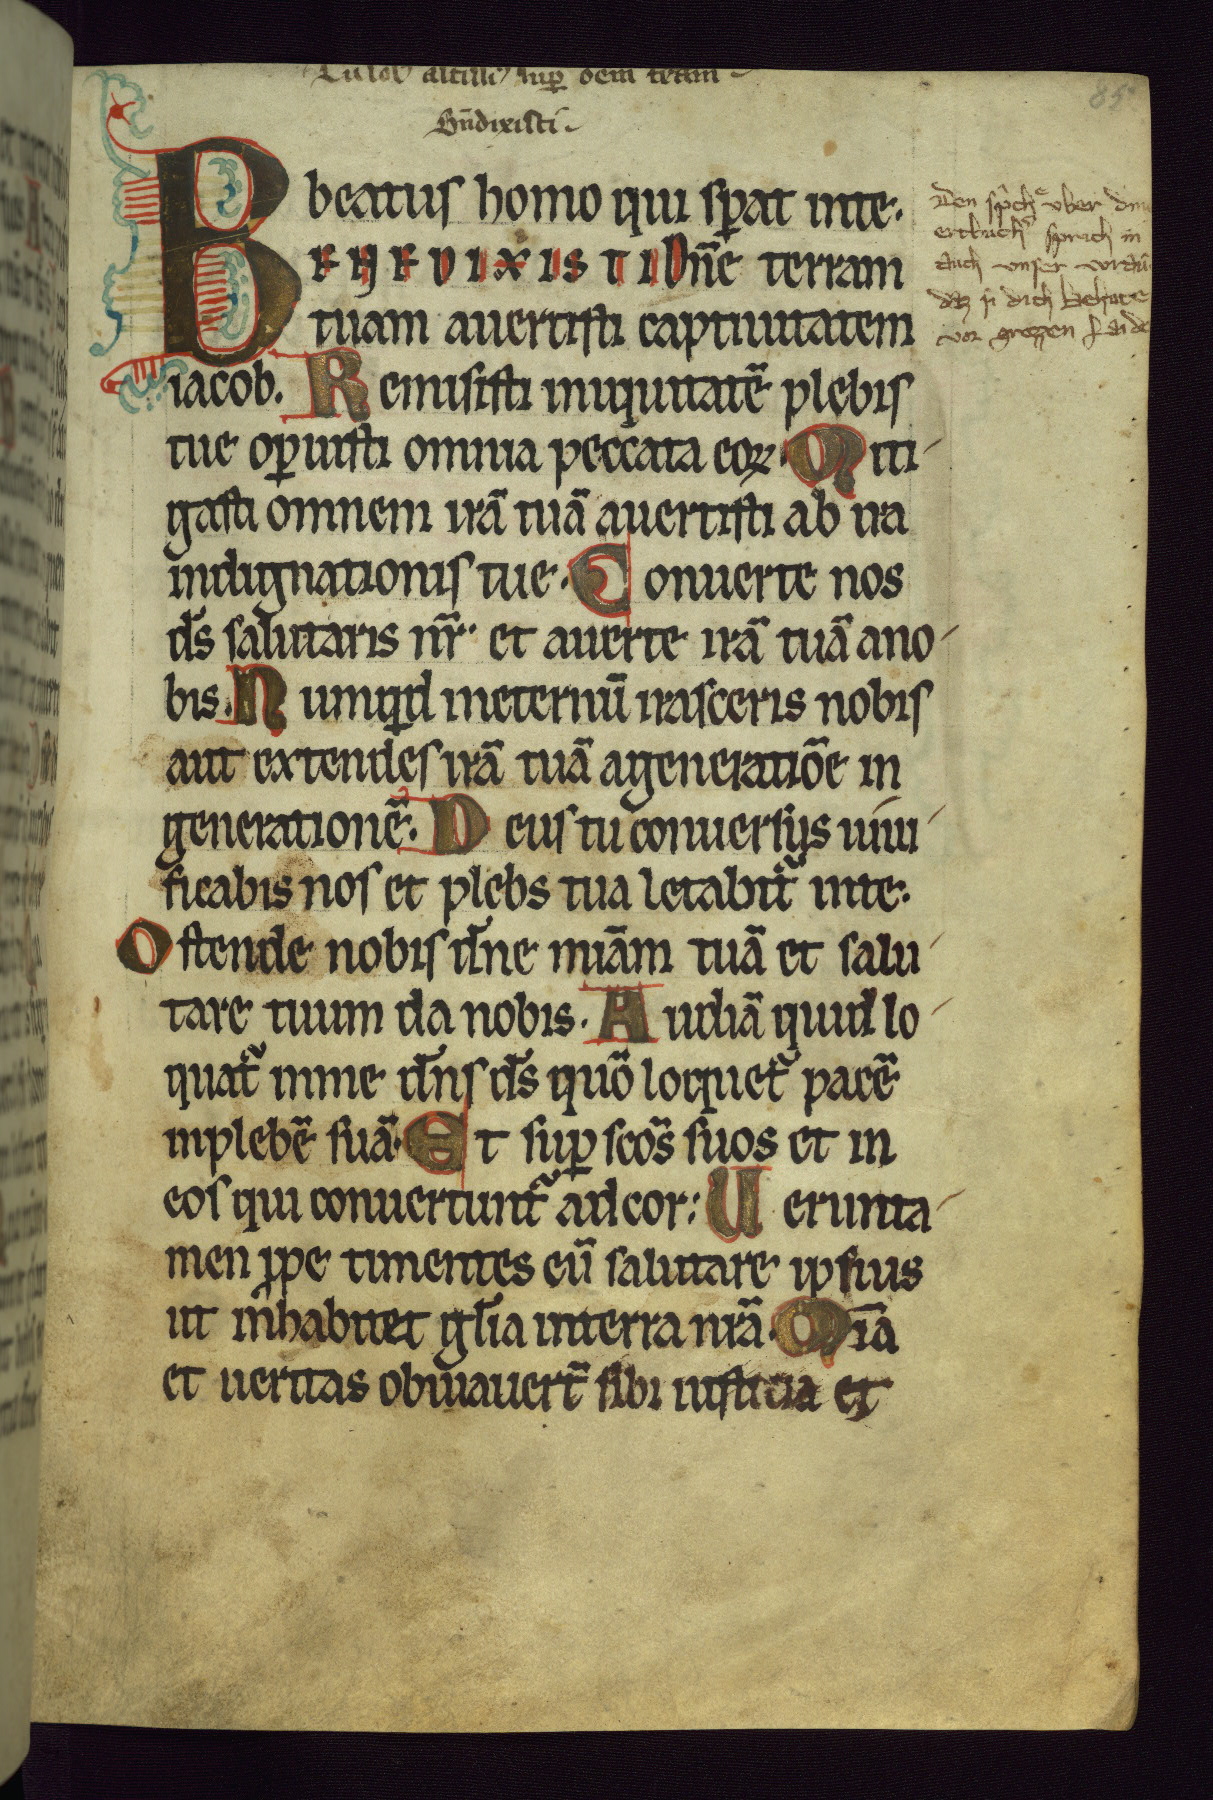 altissi sup̲ oem̄ teram
Bn̄dixisti
85
B beatus homo qui sp̲at inte.
ENEDIXISTI Dn̄e terram
tuam auertisti captiuitatem
iacob. Remisisti iniquitatē plebis
tue op̲uisti omnia peccata eoꝝ. Miti
gasti omnem irā tuā auertisti ab ira
indignationis tue. Conuerte nos
ds̄ salutaris nr̄ et auerte irā tuā ano
bis. Numq̇d ineternū irasceris nobis
aut extendes irā tuā ageneratiōe in
generationē. Deus tu conuersus uiui
ficabis nos et plebs tua letabit᷑ inte.
Ostende nobis dn̄e miām tuā et salu
tare tuum da nobis. Audiā quid lo
quat᷑ inme dn̄s ds̄ quō loquet᷑ pacē
inplebē suā. Et sup̲ scōs suos et in
eos qui conuertunt᷑ ad cor: Uerunta
men ꝓpe timentes eū salutare ipsius
ut inhabitet glīa interra nrā. Miā
et ueritas obuiauert̄ sibi iusticia et
Den sp̄ch vber din
ertbuch sprich in
auch vnser
dz si dich behute
vor grozzen